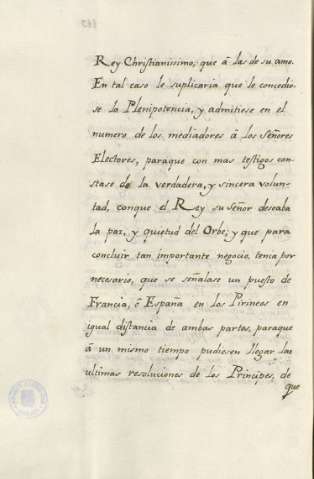 Rey Christianissimo, que â las de su amo.
En tal caso le suplicaria que le concedie-
se la Plenipotencia, y admitiese en el
numero de los mediadores â los Señores
Electores, paraque con mas testigos con-
stase de la verdadera, y sincera volun-
tad, conque el Rey su señor deseaba
la paz, y quietud del Orbe; y que para
concluir tan importante negocio, tenia por
necesario, que se señalase un puesto de
Francia, ô España en los Pirineos en
igual distancia de ambas partes, paraque
â un mismo tiempo pudiesen llegar las
ultimas resoluciones de los Principes, de
que